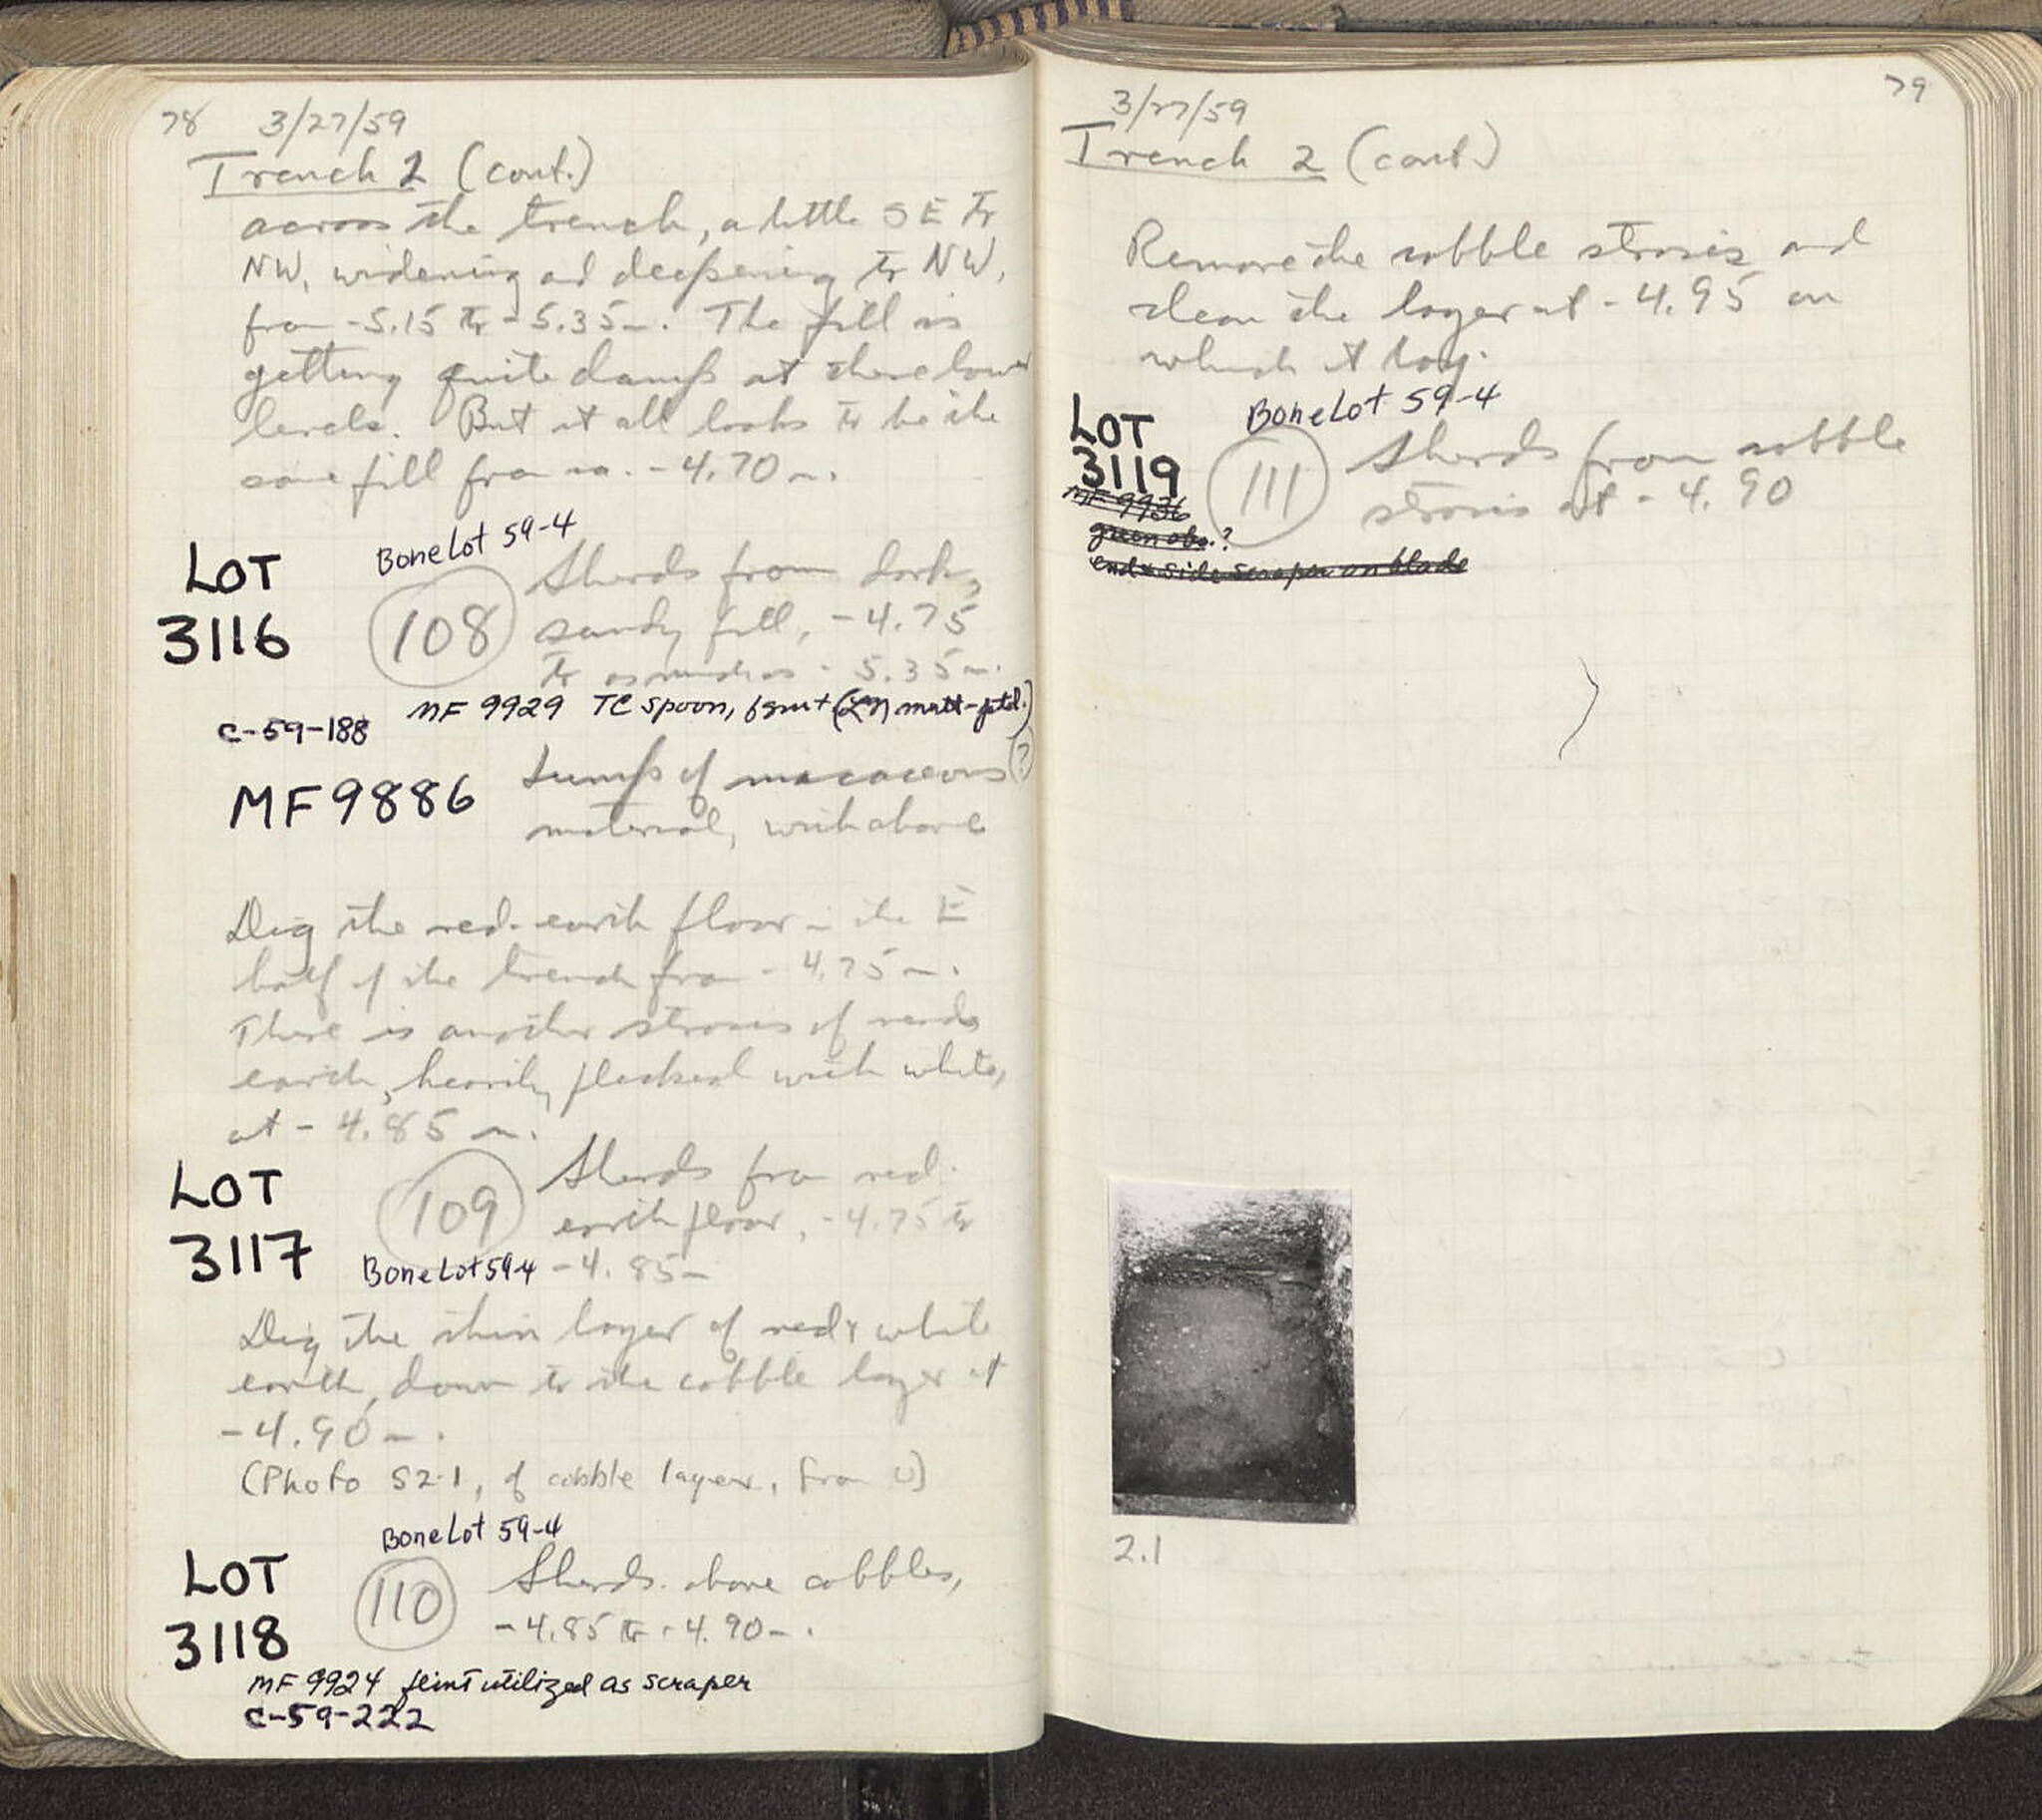 78 3/27/59
Trench 2 (cont.)
across the trench, a little SE to
NW, widening and deepening to NW,
from -5.15 to -5.35m. The fill is
getting quite damp at these lower
levels. But it all looks to be the
same fill from ca. -4.70m.
BoneLot 59-4
LOT
3116
108
Sherds from dark,
sandy fill, -4.75
to as much as -5.35m.
C-59-188
MF 9929 TC spoon, fgmt (LN matt-ptd.)
MF9886
Lumps of micaceous (?)
material, with above
Dig the red-earth floor in the E
half of the trench from -4.75m.
There is another strosis of
earth, heavily flecked with white,
at -4.85m.
LOT
3117
109
Sherds from red-
earth floor, -4.75 to
-4.85m
BoneLot 59-4
Dig the thin layer of red & white
earth, down to the cobble layer at
-4.90m.
(Photo 52-1, of cobble layer, from )
BoneLot 59-4
LOT
3118
110
Sherds above cobbles,
-4.85 to -4.90m.
MF 9924 flint utilized as scraper
C-59-222
79
3/27/59
Trench 2 (cont.)
Remove the cobble strosis and
clean the layer at -4.95 on
which it lay.
BoneLot 59-4
LOT
3119
111
Sherds from cobble
strosis at -4.90
MF 9936
green obs.?
end & side scraper on blade
2.1